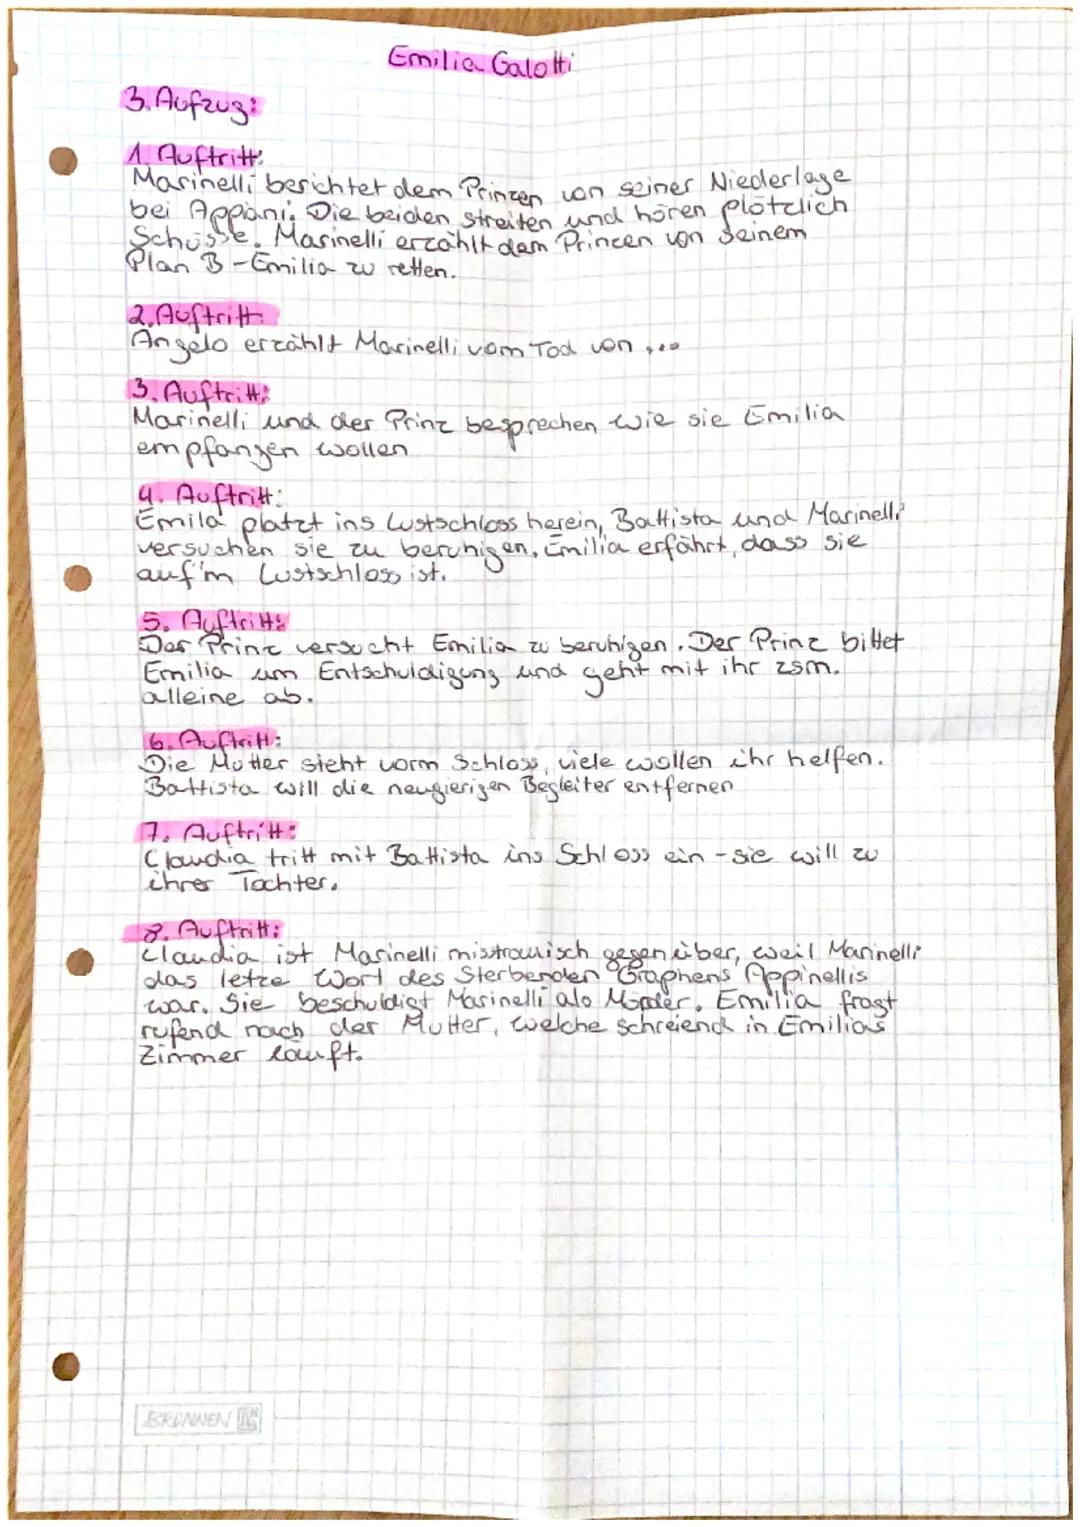 Emilia Galotti
3. Aufzug:
1. Auftritt:
Marinelli berichtet dem Prinzen von seiner Niederlage
bei Appiani. Die beiden streiten und hören plötzlich
Schüsse. Marinelli erzählt dem Prinzen von seinem
Plan B - Emilia zu retten.
2. Auftritt:
Angelo erzählt Marinelli vom Tod von ...
3. Auftritt:
Marinelli und der Prinz besprechen wie sie Emilia
empfangen wollen
4. Auftritt:
Emila platzt ins Lustschloss herein, Battista und Marinelli
versuchen sie zu beruhigen. Emilia erfährt, dass sie
auf'm Lustschloss ist.
5. Auftritt:
Der Prinz versucht Emilia zu beruhigen. Der Prinz bittet
Emilia um Entschuldigung und geht mit ihr zsm.
alleine ab.
6. Auftritt:
Die Mutter steht vorm Schloss, viele wollen ihr helfen.
Battista will die neugierigen Begleiter entfernen
7. Auftritt:
Claudia tritt mit Battista ins Schloss ein - sie will zu
ihrer Tochter.
8. Auftritt:
Claudia ist Marinelli misstrauisch gegenüber, weil Marinelli
das letze Wort des Sterbenden Graphens Appinellis
war. Sie beschuldigt Marinelli als Mörder. Emilia fragt
rufend nach der Mutter, welche schreiend in Emilias
Zimmer läuft.
BRUNNEN